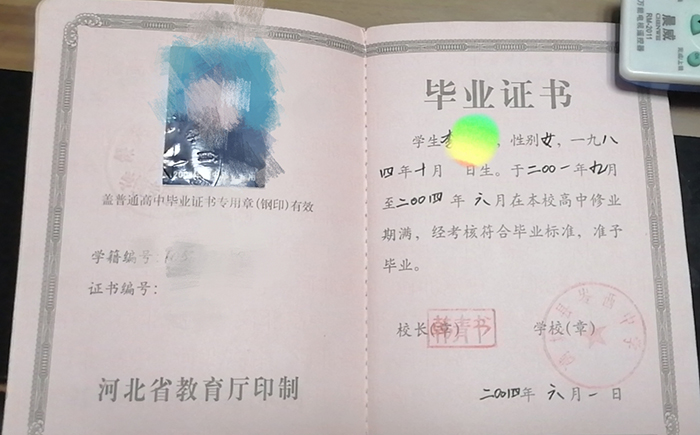 盖普通高中毕业证书专用章(钢印)有效
学籍编号:
证书编号:
河北省教育厅印制
毕业证书
学生李 ,性别女,一九八
四年十月 日生。于二00一年九月
至二00四年六月在本校高中修业
期满,经考核符合毕业标准,准予
毕业。
校长(章)
学校(章)
二00四年六月一日
晨威
CHUNWEI
RM-2011
万能电视遥控器